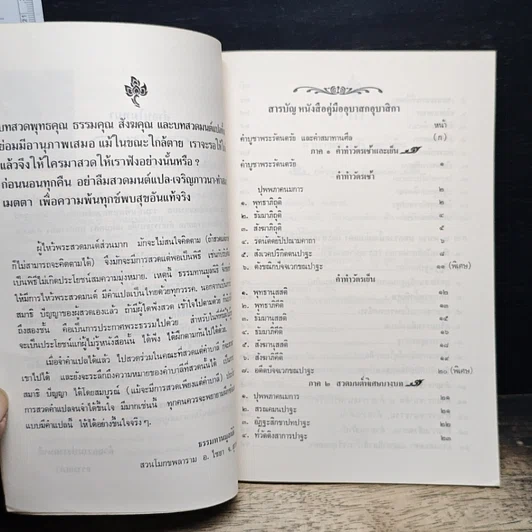 บทสวดพุทธคุณ ธรรมคุณ สังฆคุณ และบทสวดมนต์แปล
ย่อมมีอานุภาพเสมอ แม้ในขณะใกล้ตาย เราจะรอให้
แล้วจึงให้ใครมาสวด ให้เราฟังอย่างนั้นหรือ ?
ก่อนนอนทุกคืน อย่าลืมสวดมนต์แปล-เจริญภาวนา
เมตตา เพื่อความพ้นทุกข์พบสุขอันแท้จริง
ผู้ไหว้พระสวดมนต์ส่วนมาก มักจะไม่สนใจคิดตาม
ก็ไม่สามารถจะคิดตามได้) จึงมักจะมีการสวดแต่พอเป็นพิธี
เป็นพิธีไม่เกิดประโยชน์สมความมุ่งหมาย. เหตุนี้ ธรรมทานมูลนิธิ
ให้มีการไหว้พระสวดมนต์ มีคำแปลเป็นไทยด้วยทุกวรรค.
สมาธิ ปัญญาของผู้สวดเองแล้ว ถ้ามีผู้ใดฟังสวด เข้าใจไปตามด้วย
ถึงสองชั้น คือเป็นการประกาศพระธรรมไปด้วย
จะเป็นประโยชน์แก่ผู้ไม่รู้หนังสือนั้น ได้ฟัง
เมื่อจำคำแปลได้แล้ว ไปสวดร่วมในคณะที่สวดแต่คำบาลี
เขาไปได้ และยังจะระลึกถึงความหมายของคำบาลีที่สวดนั้นได้
สมาธิ ปัญญา ได้โดยสมบูรณ์ (แม้จะมีการสวดเพียงแต่คำบาลี)
การสวดคำแปลจนจำได้ขึ้นใจ มีมากเช่นนี้ ทุกคนควรจะพยายาม
แบบมีคำแปลนี้ ให้ได้อย่างขึ้นใจจริง ๆ.
ธรรมทานมูลนิธิ
สวนโมกขพลาราม อ. ไชยา
สารบัญ หนังสือคู่มืออุบาสกอุบาสิกา
หน้า
คำบูชาพระรัตนตรัย และคำสมาทานศีล (ก)
ภาค ๑ คำทำวัตรเช้าและเย็น
คำบูชาพระรัตนตรัย ๑
คำทำวัตรเช้า
ปุพพภาคนมการ ๒
๑. พุทธาภิถุติ ๒
๒. ธัมมาภิถุติ
๓. สังฆาภิถุติ
๔. รตนัตตยัปปณามคาถา
๕. สังเวคปริกิตตนปาฐะ
๖. ตังขณิกปัจจเวกขณปาฐะ ๑๑ (พิเศษ)
คำทำวัตรเย็น
๑. พุทธานุสสติ ๑๒
๒. พุทธาภิคีติ
๓. ธัมมานุสสติ
๔. ธัมมาภิคีติ
๕. สังฆานุสสติ
๖. สังฆาภิคีติ
๗. อตีตปัจจเวกขณปาฐะ ๒๐ (พิเศษ)
ภาค ๒ สวดมนต์พิเศษบางบท
๑. ปุพพภาคนมการ ๒๒
๒. สรณคมนปาฐะ ๒๒
๓. อัฏฐสิกขาปทปาฐะ ๒๒
๔. ทวัตติงสาการปาฐะ ๒๓